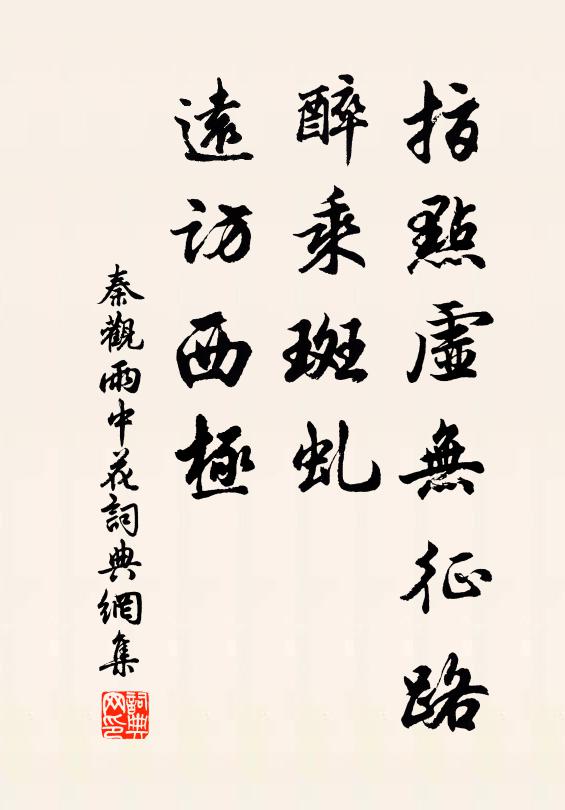 指點虛無征路
醉乘斑虬
遠訪西極
秦觀雨中花詞典網集
詞典網印